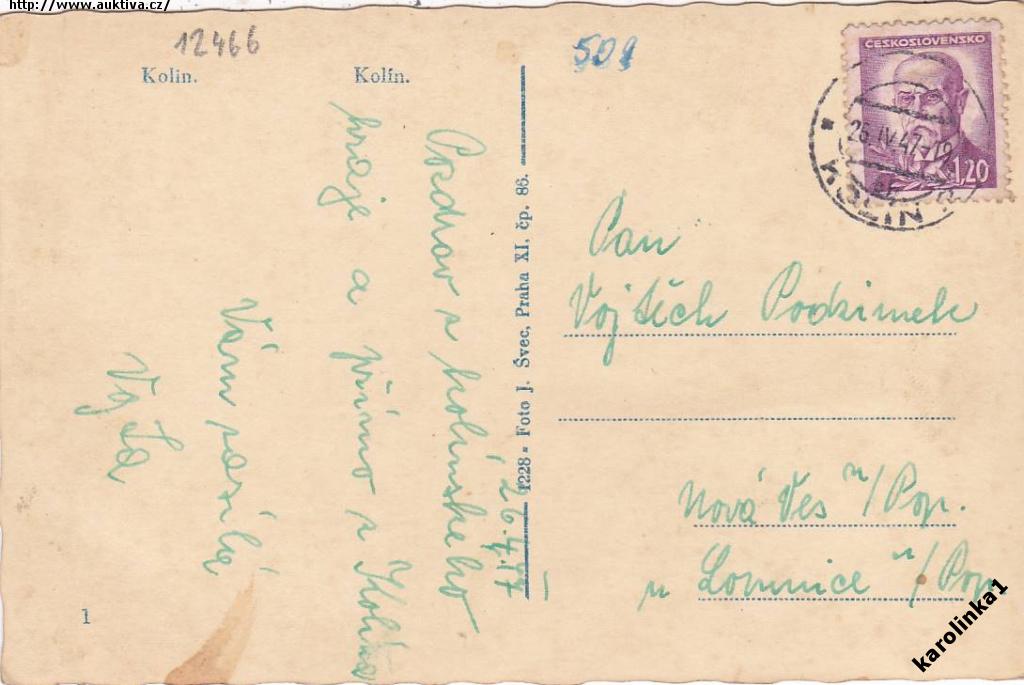 http://www.auktiva.cz/
12466
Kolin.
Kolín.
509
ČESKOSLOVENSKO
1,20
26.IV.47-19
KOLÍN
Pozdrav z kolínského
kraje a přímo z Kolína
Vám posílá
26.4.47
1228 - Foto J. Švec, Praha XI, čp. 86.
Pan
Vojtěch Podzimek
Nová Ves n/Pop.
u Lomnice n/Pop
1
karolinka1